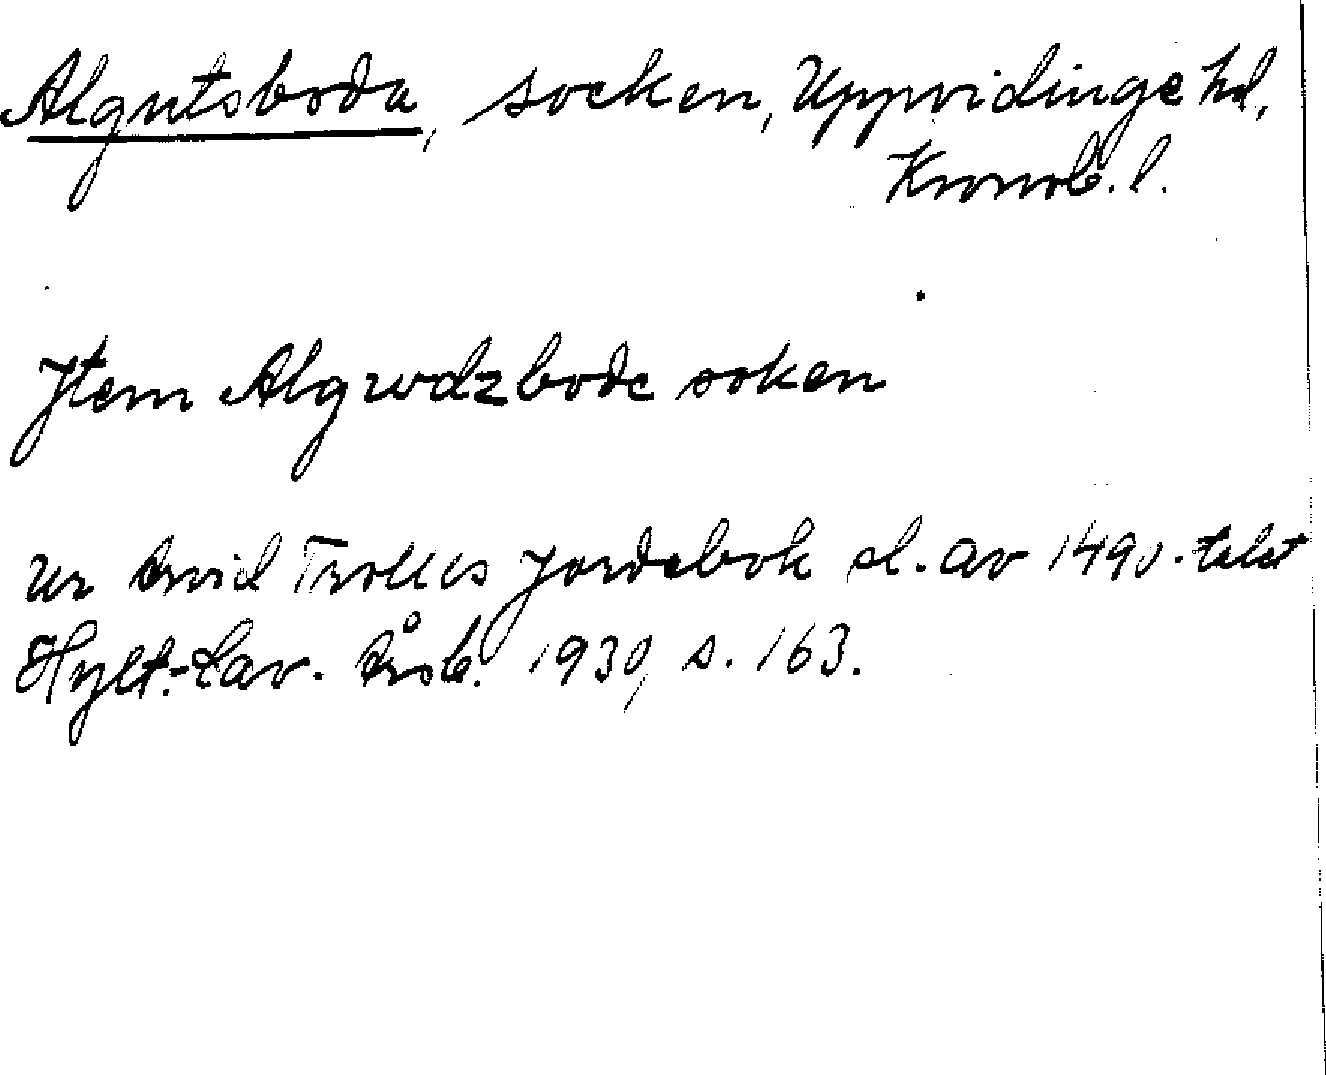 Algutsboda, socken, Uppvidinge hd,
Kronob. l.
Jtem Algwdzbode soken
Ur Arvid Trolles Jordebok sl. av 1490-talet
Hylt.-Cav. Årsb. 1930, s. 163.